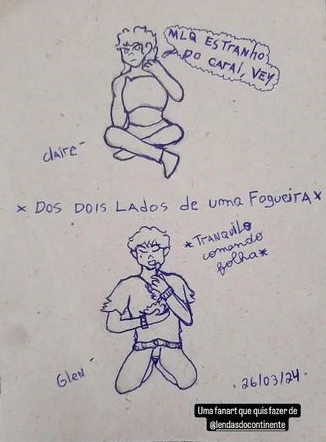 MLQ ESTRANHO
DO CARAI, VEY
Claire
* DOS DOIS LADOS de uma FogueirA *
*TRANQUILO
comendo
folha*
Glen
. 26/03/24 .
Uma fanart que quis fazer de
@lendasdocontinente